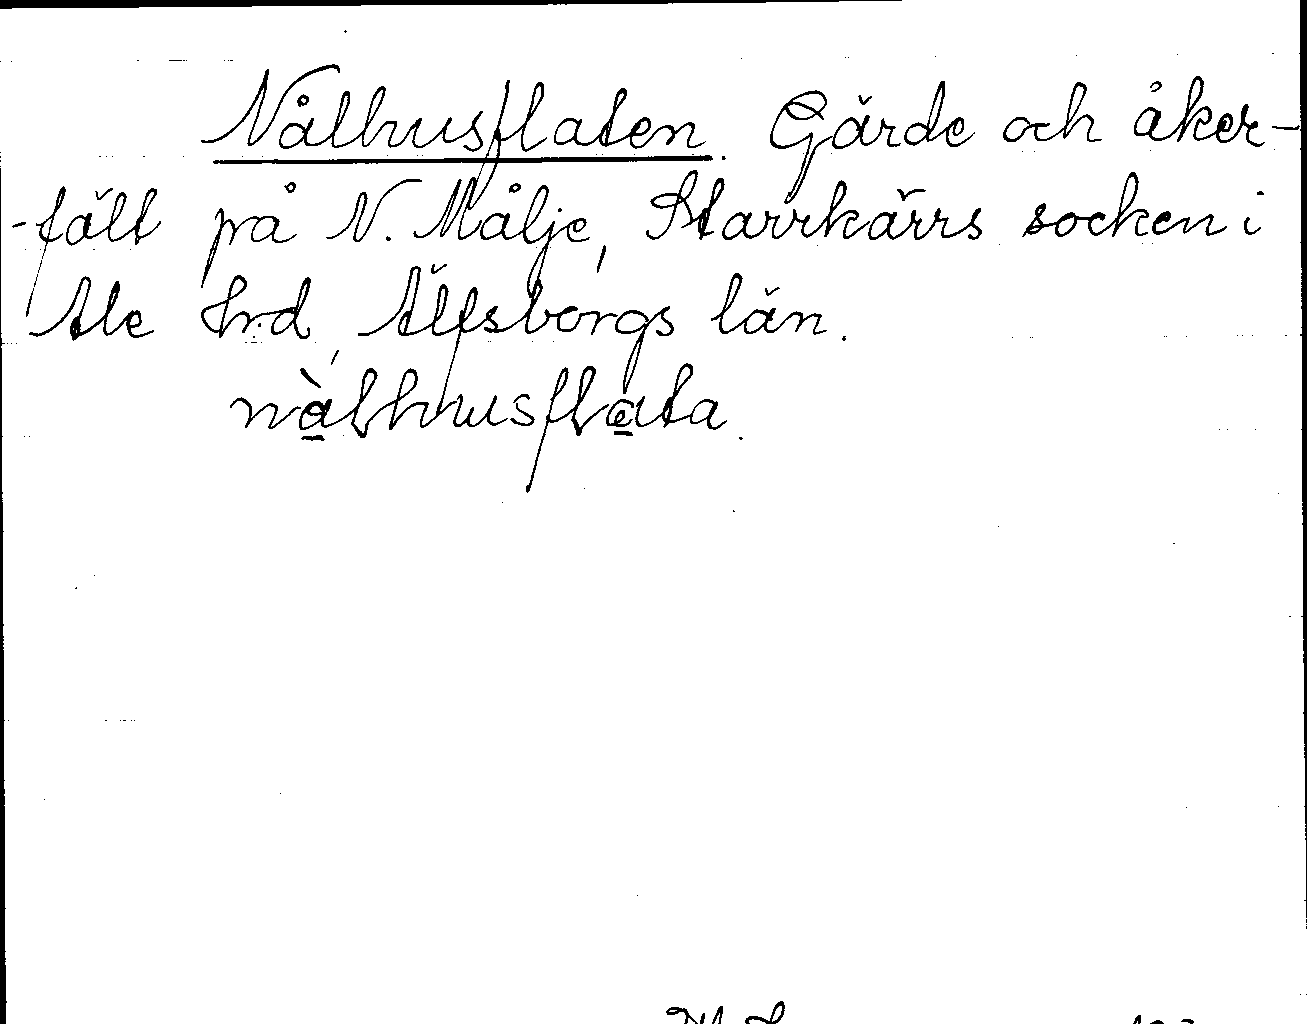 Nålhusflaten. Gärde och åker-
-fält på N. Målje, Starrkärrs socken i
Ale hrd, Älfsborgs län.
nàlhusflata.